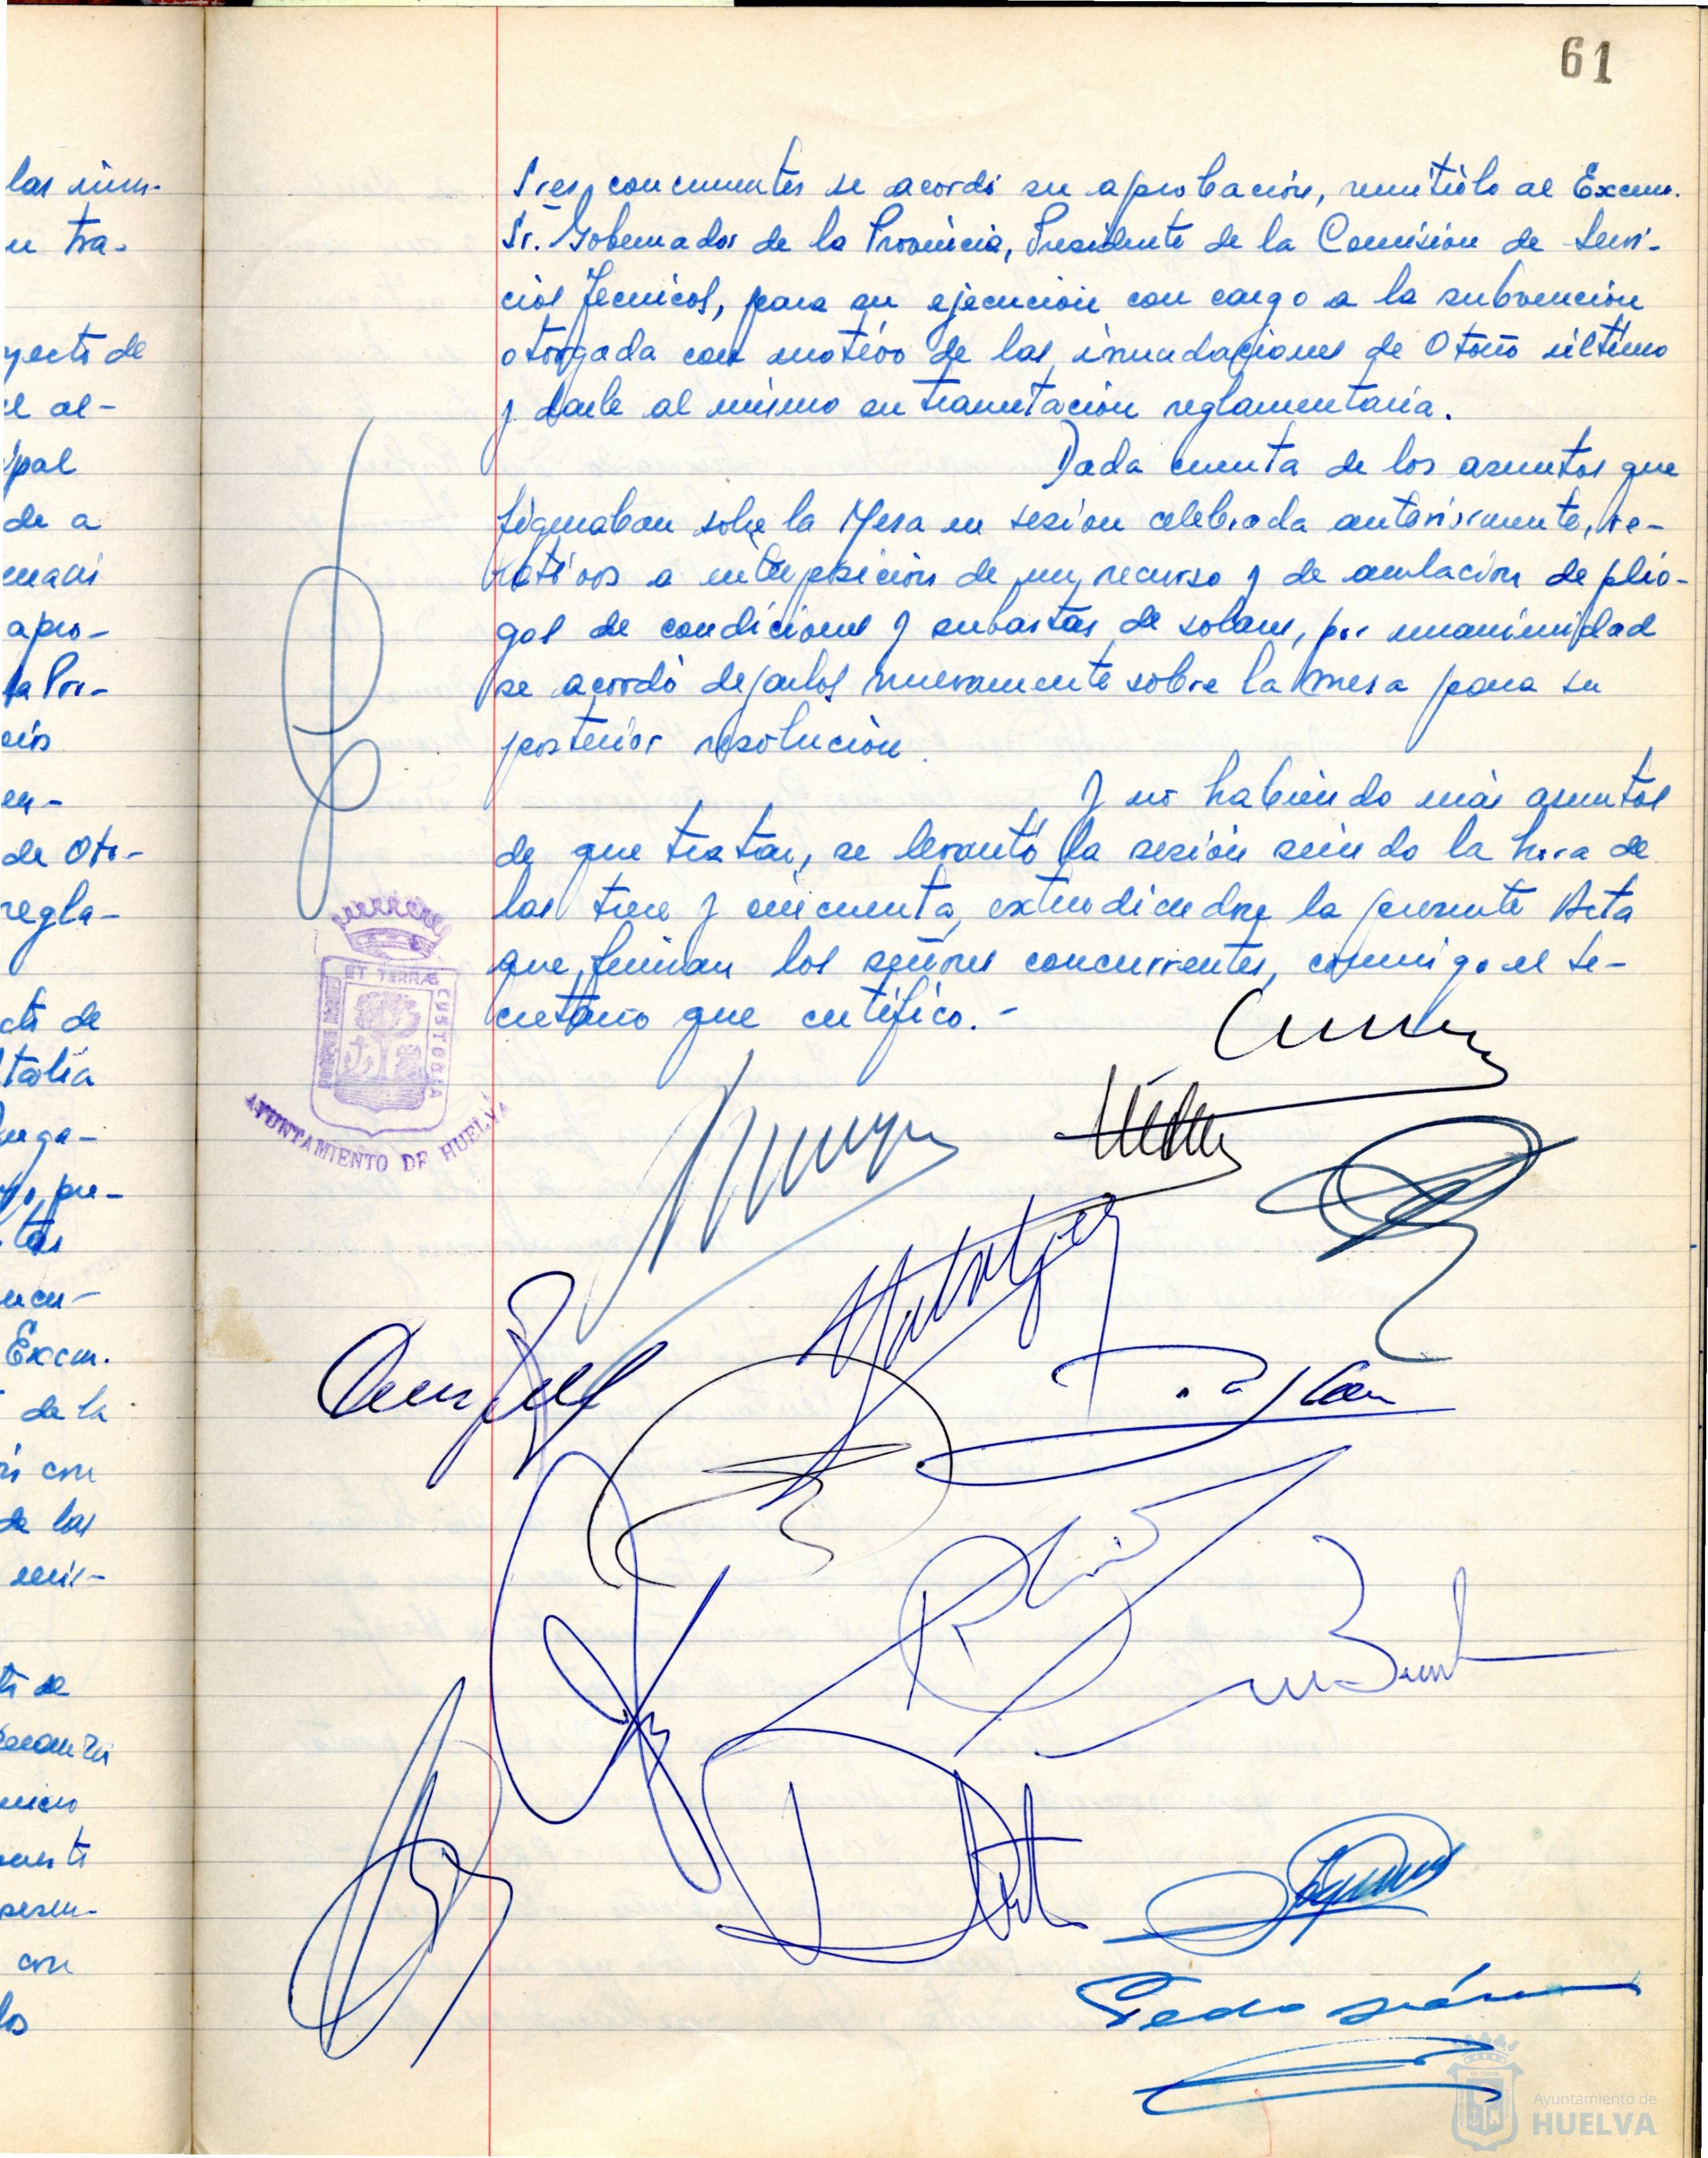 61
las núm-
n tra-
yecto de
el al-
ipal
de a
apro-
la Pro-
en-
de Oto-
regla-
cto de
pre-
Excm.
de la
ón con
de las
mis-
con
Sres. concurrentes se acordó su aprobación, remitirlo al Excmo.
Sr. Gobernador de la Provincia, Presidente de la Comisión de Servi-
cios Tecnicos, para su ejecución con cargo a la subvención
otorgada con motivo de las inundaciones de Otoño último
y darle al mismo su tramitación reglamentaria.
Dada cuenta de los asuntos que
figuraban sobre la Mesa en sesion celebrada anteriormente, re-
lativos a interposición de un recurso y de anulación de plie-
gos de condiciones y subastas de solares, por unanimidad
se acordó dejarlos nuevamente sobre la mesa para su
posterior resolución.
Y no habiendo más asuntos
de que tratar, se levantó la sesión siendo la hora de
las trece y cincuenta, extendiendose la presente Acta
que firman los señores concurrentes, conmigo el Se-
cretario que certifico.-
PORTUS MARIS ET TERRAE CUSTODIA
AYUNTAMIENTO DE HUELVA
Pedro
Ayuntamiento de
HUELVA